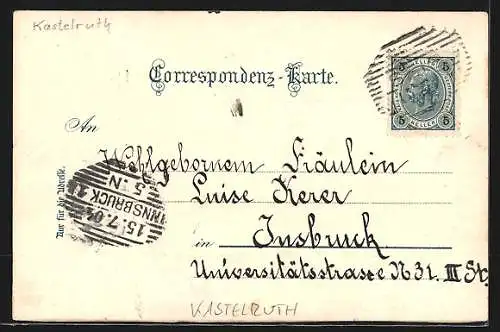 Kastelruth
5 HELLER 5
5 HELLER 5
Correspondenz-Karte.
An
Wohlgebornem Fräulein
Luise Kerer
in Insbruck
Universitätsstrasse N 31. III St.
Nur für die Adresse.
INNSBRUCK 1
15.7.04
5.N
KASTELRUTH